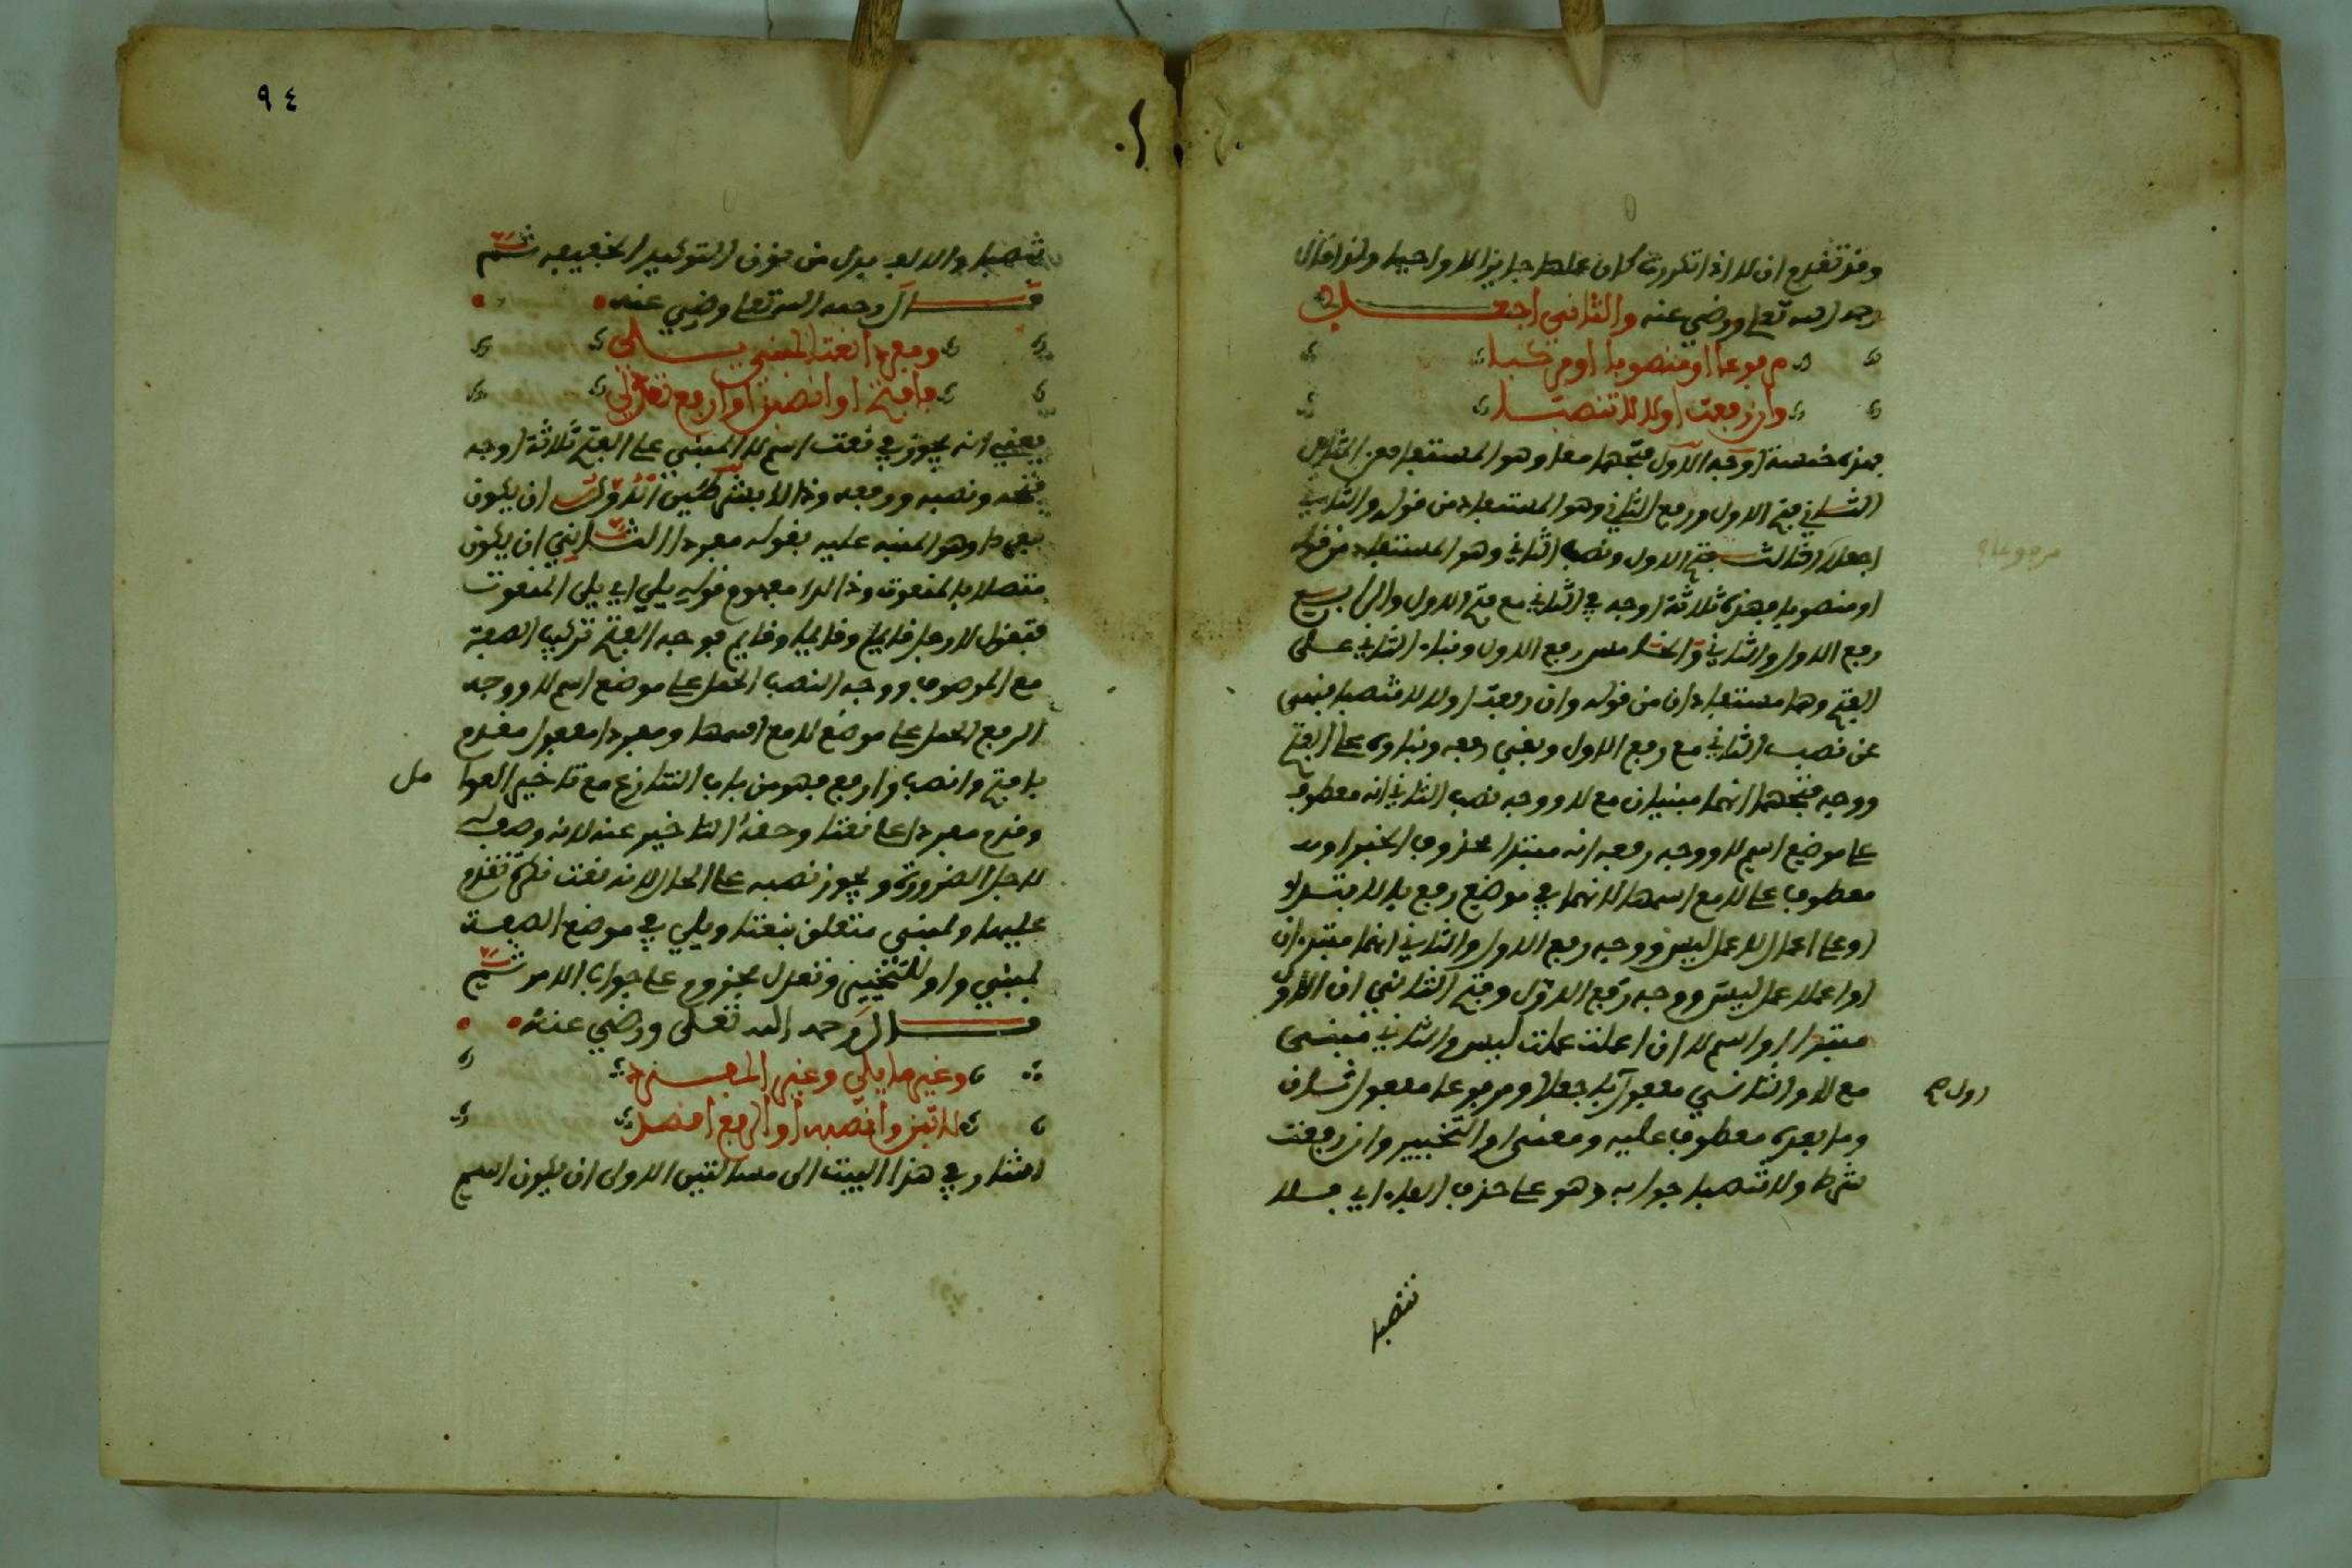 وقد تقدم ان لا اذا تكررت كان عملها جايزا لا واجبا ولذا قال
رحمه الله تعلى ورضي عنه والثاني اجعلا
مرفوعا او منصوبا او مركبا
وان رفعت اولا لا تنصبا
فهذه خمسة اوجه الاول فتحهما معا وهو المستفاد من
الثاني فتح الاول ورفع الثاني وهو المستفاد من قوله والثاني
اجعلا الثالث فتح الاول ونصب الثاني وهو المستفاد من قوله
او منصوبا فهذه ثلاثة اوجه في الثاني مع فتح الاول والرابع
رفع الاول والثاني والخامس رفع الاول وبناء الثاني على
الفتح وهما مستفادان من قوله وان رفعت اولا لا تنصبا فنهى
عن نصب الثاني مع رفع الاول وبقي رفعه وبناوه على الفتح
ووجه فتحهما انهما مبنيان مع لا ووجه نصب الثاني انه معطوف
على موضع اسم لا ووجه رفعه انه مبتدا محذوف الخبر او
معطوف على لا مع اسمها لانهما في موضع رفع بالابتداء
او على اعمال لا عمل ليس ووجه رفع الاول والثاني انهما مبتدان
او اعملا عمل ليس ووجه رفع الاول وفتح الثاني ان الاول
مبتدا او اسم لا ان اعملت عمل ليس والثاني مبنى
مع لا والثاني مفعول باجعلا ومرفوعا مفعول ثان
اول
وما بعده معطوف عليه ومعنى او التخيير وان رفعت
شرط ولا تنصبا جوابه وهو على حذف الفاء اي فلا
تنصبا
٩٤
تنصبا والالف بدل من نون التوكيد الخفيفه ثم
قال رحمه الله تعلى ورضي عنه
ومفردا نعتا لمبني يلي
فافتح او انصبن او ارفع تعدل
يعني انه يجوز في نعت اسم لا المبني على الفتح ثلاثة اوجه
فتحه ونصبه ورفعه وذلك بشرطين الاول ان يكون
مفردا وهو المنبه عليه بقوله مفردا الثاني ان يكون
متصلا بالمنعوت وذلك مفهوم قوله يلي اي يلى المنعوت
فتقول لا رجل قايم وقايما وقايم فوجه الفتح تركيب الصفة
مع الموصوف ووجه النصب الحمل على موضع اسم لا ووجه
الرفع الحمل على موضع لا مع اسمها ومفردا مفعول مقدم
بافتح وانصب وارفع فهو من باب التنازع مع تاخير العوا مل
وقدم مفردا على نعتا وحقه التاخير عنه لانه وصف له
لاجل الضرورة ويجوز نصبه على الحال لانه نعت نكرة تقدم
عليها ولمبنى متعلق بنعتا ويلي في موضع الصفة
لمبني واو للتخيير وتعدل مجزوم على جواب الامر ثم
قال رحمه الله تعلى ورضي عنه
وغير ما يلي وغير المفرد
لا تبن وانصبه او الرفع اقصد
اشار في هذا البيت الى مسالتين الاولى ان يكون اسم